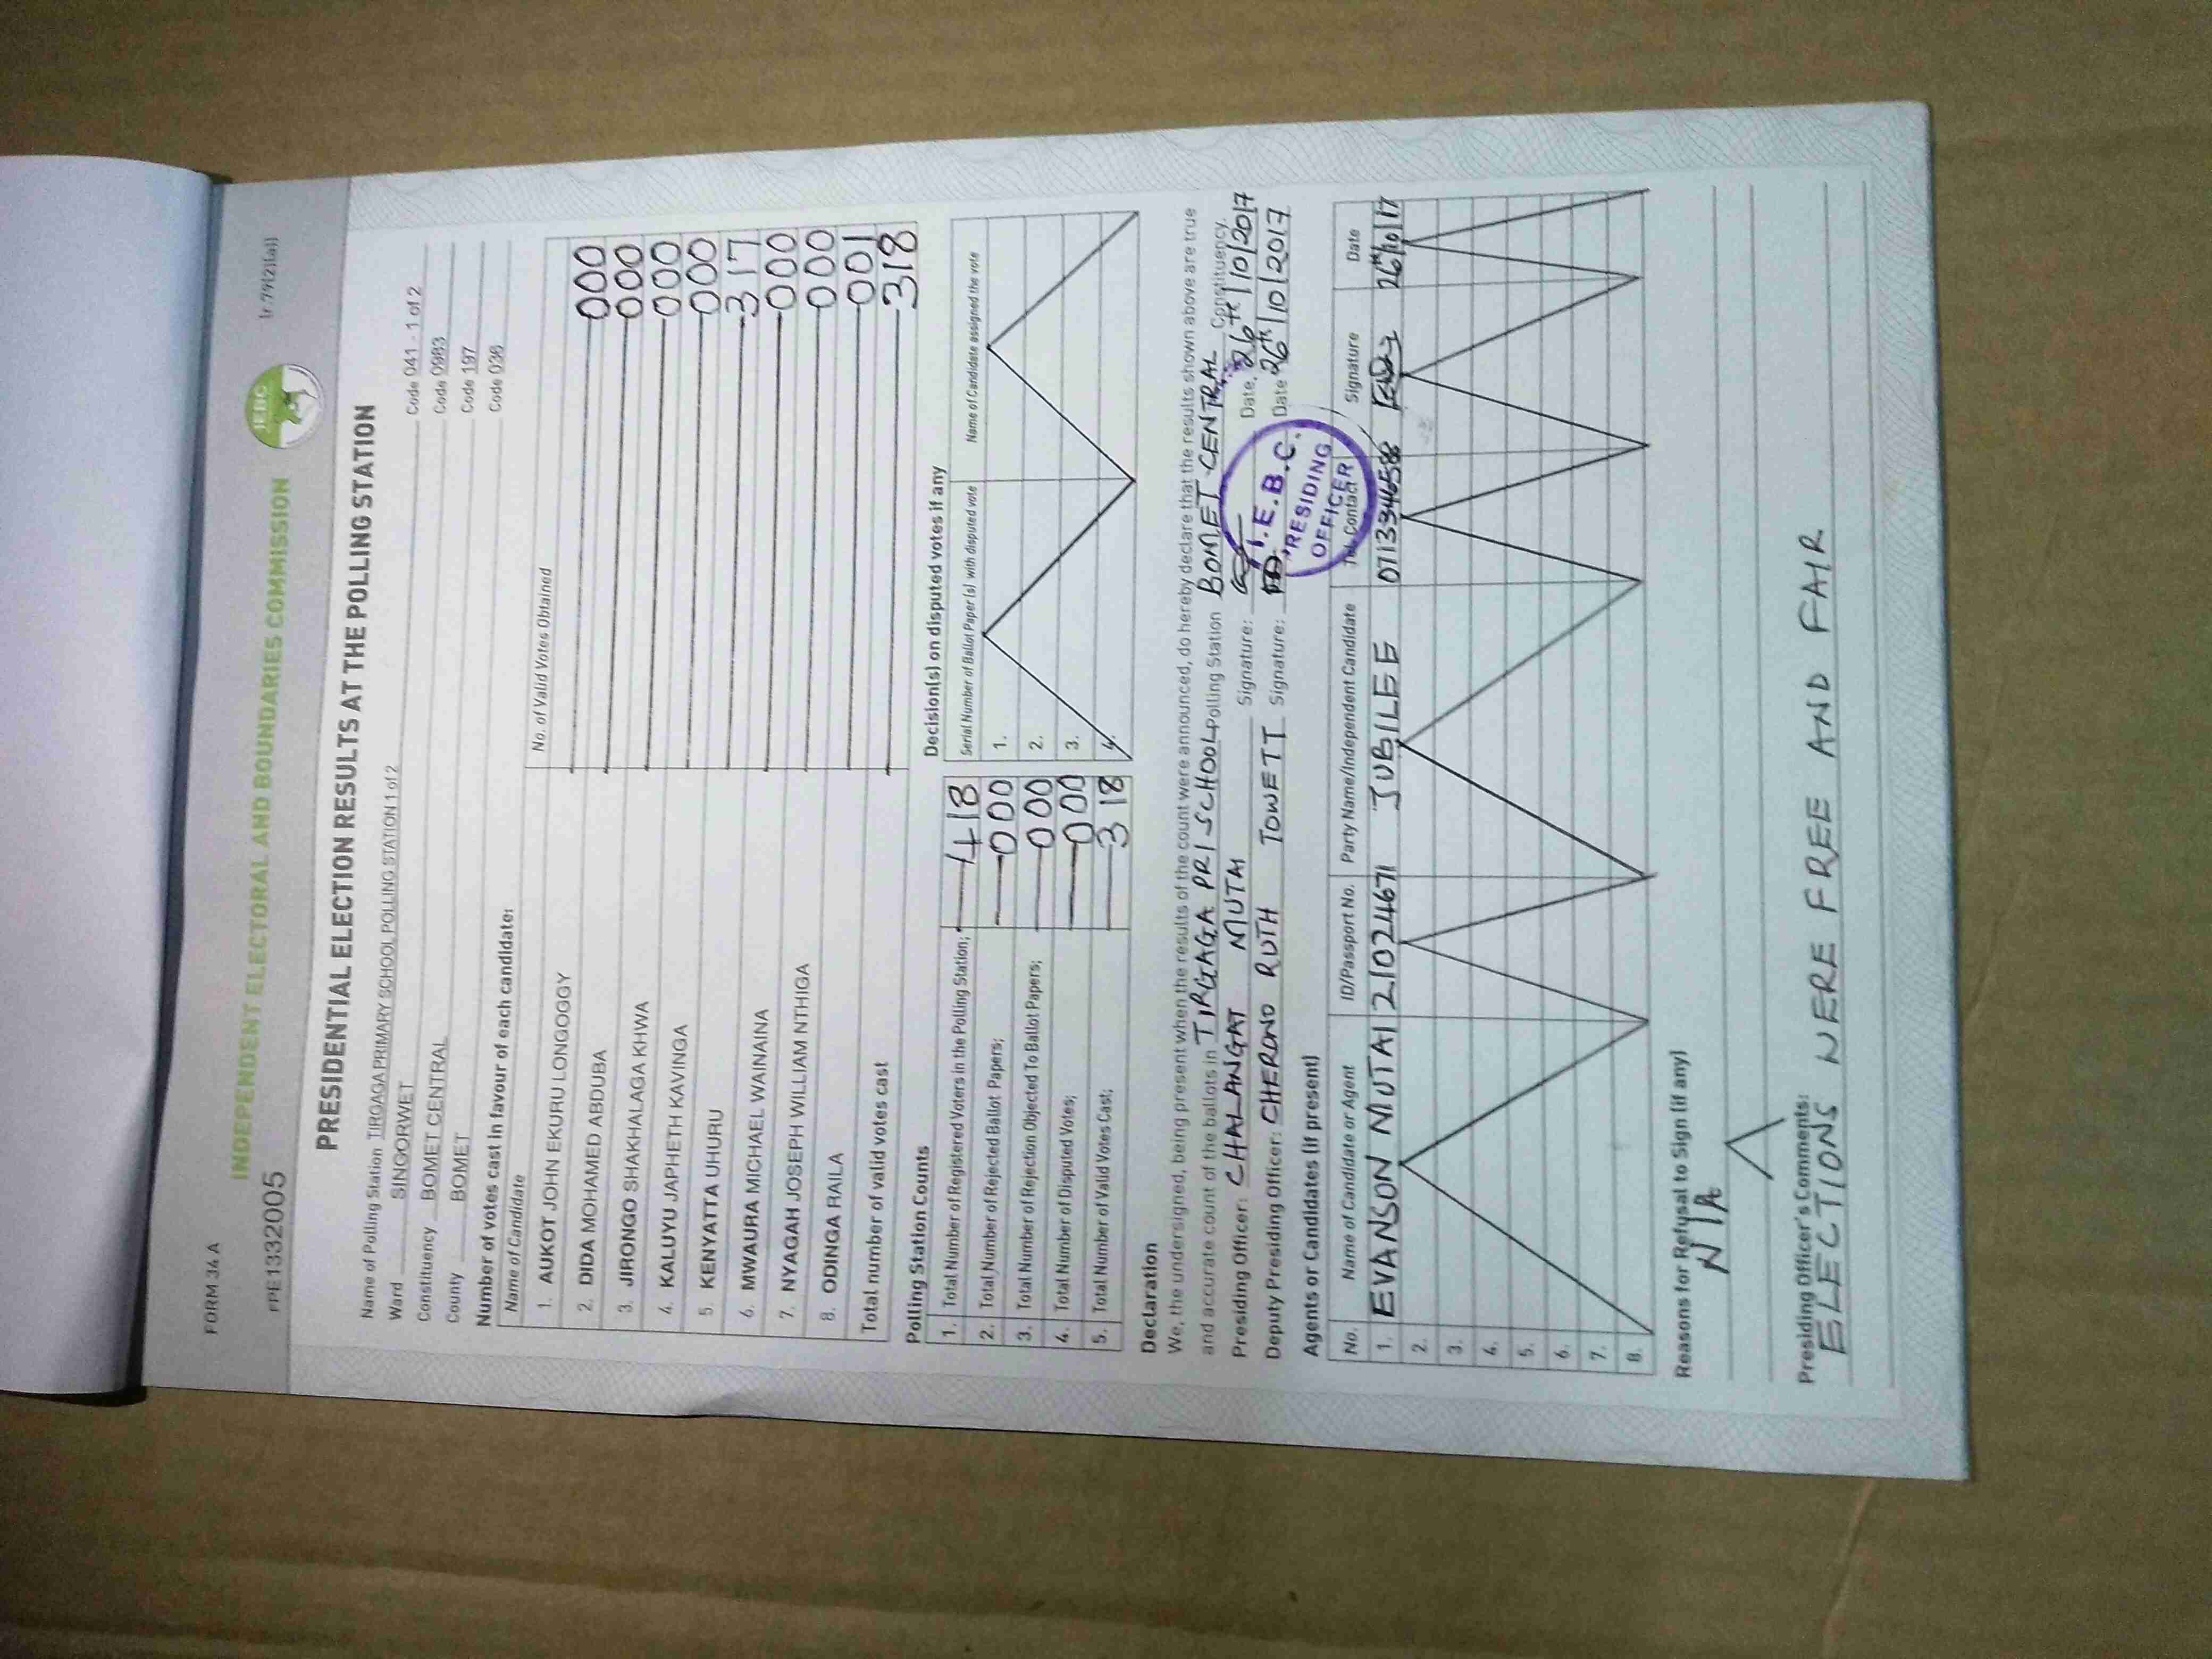 FORM 34 A
(r.79(2)(a))
INDEPENDENT ELECTORAL AND BOUNDARIES COMMISSION
IEBC
PPE1332005
PRESIDENTIAL ELECTION RESULTS AT THE POLLING STATION
Name of Polling Station TIRGAGA PRIMARY SCHOOL POLLING STATION 1 of 2 Code 041 - 1 of 2
Ward SINGORWET Code 0983
Constituency BOMET CENTRAL Code 197
County BOMET Code 036
Number of votes cast in favour of each candidate:
Name of Candidate No. of Valid Votes Obtained
1. AUKOT JOHN EKURU LONGOGGY 000
2. DIDA MOHAMED ABDUBA 000
3. JIRONGO SHAKHALAGA KHWA 000
4. KALUYU JAPHETH KAVINGA 000
5. KENYATTA UHURU 317
6. MWAURA MICHAEL WAINAINA 000
7. NYAGAH JOSEPH WILLIAM NTHIGA 000
8. ODINGA RAILA 001
Total number of valid votes cast 318
Polling Station Counts
1. Total Number of Registered Voters in the Polling Station; 418
2. Total Number of Rejected Ballot Papers; 000
3. Total Number of Rejection Objected To Ballot Papers; 000
4. Total Number of Disputed Votes; 000
5. Total Number of Valid Votes Cast; 318
Decision(s) on disputed votes if any
Serial Number of Ballot Paper (s) with disputed vote Name of Candidate assigned the vote
1.
2.
3.
4.
Declaration
We, the undersigned, being present when the results of the count were announced, do hereby declare that the results shown above are true
and accurate count of the ballots in TIRGAGA PRI SCHOOL Polling Station BOMET CENTRAL Constituency.
Presiding Officer: CHALANGAT MUTAI Signature: Date. 26th/10/2017
Deputy Presiding Officer: CHERONO RUTH TOWETT Signature: Date 26th/10/2017
I.E.B.C.
PRESIDING
OFFICER
Agents or Candidates (if present)
No. Name of Candidate or Agent ID/Passport No. Party Name/Independent Candidate Tel. Contact Signature Date
1. EVANSON MUTAI 21024671 JUBILEE 0713344658 26th/10/17
2.
3.
4.
5.
6.
7.
8.
Reasons for Refusal to Sign (if any)
N/A
Presiding Officer's Comments:
ELECTIONS WERE FREE AND FAIR